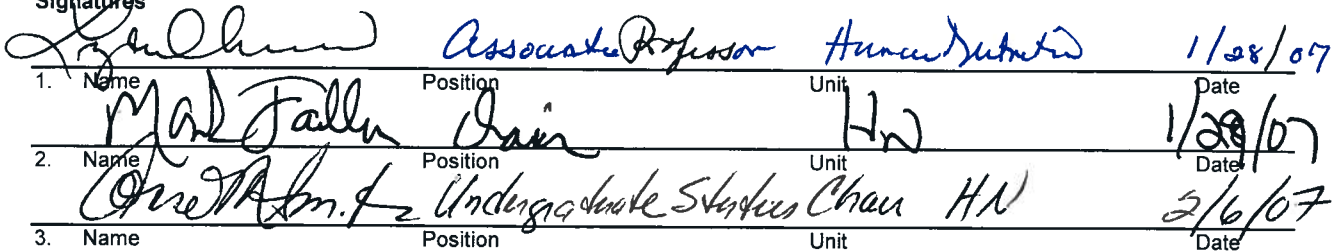 Signatures
Associate Professor Human Nutrition 1/28/07
1. Name Position Unit Date
Mark Failla Chair HN 1/29/07
2. Name Position Unit Date
Undergraduate Studies Chair HN 2/6/07
3. Name Position Unit Date